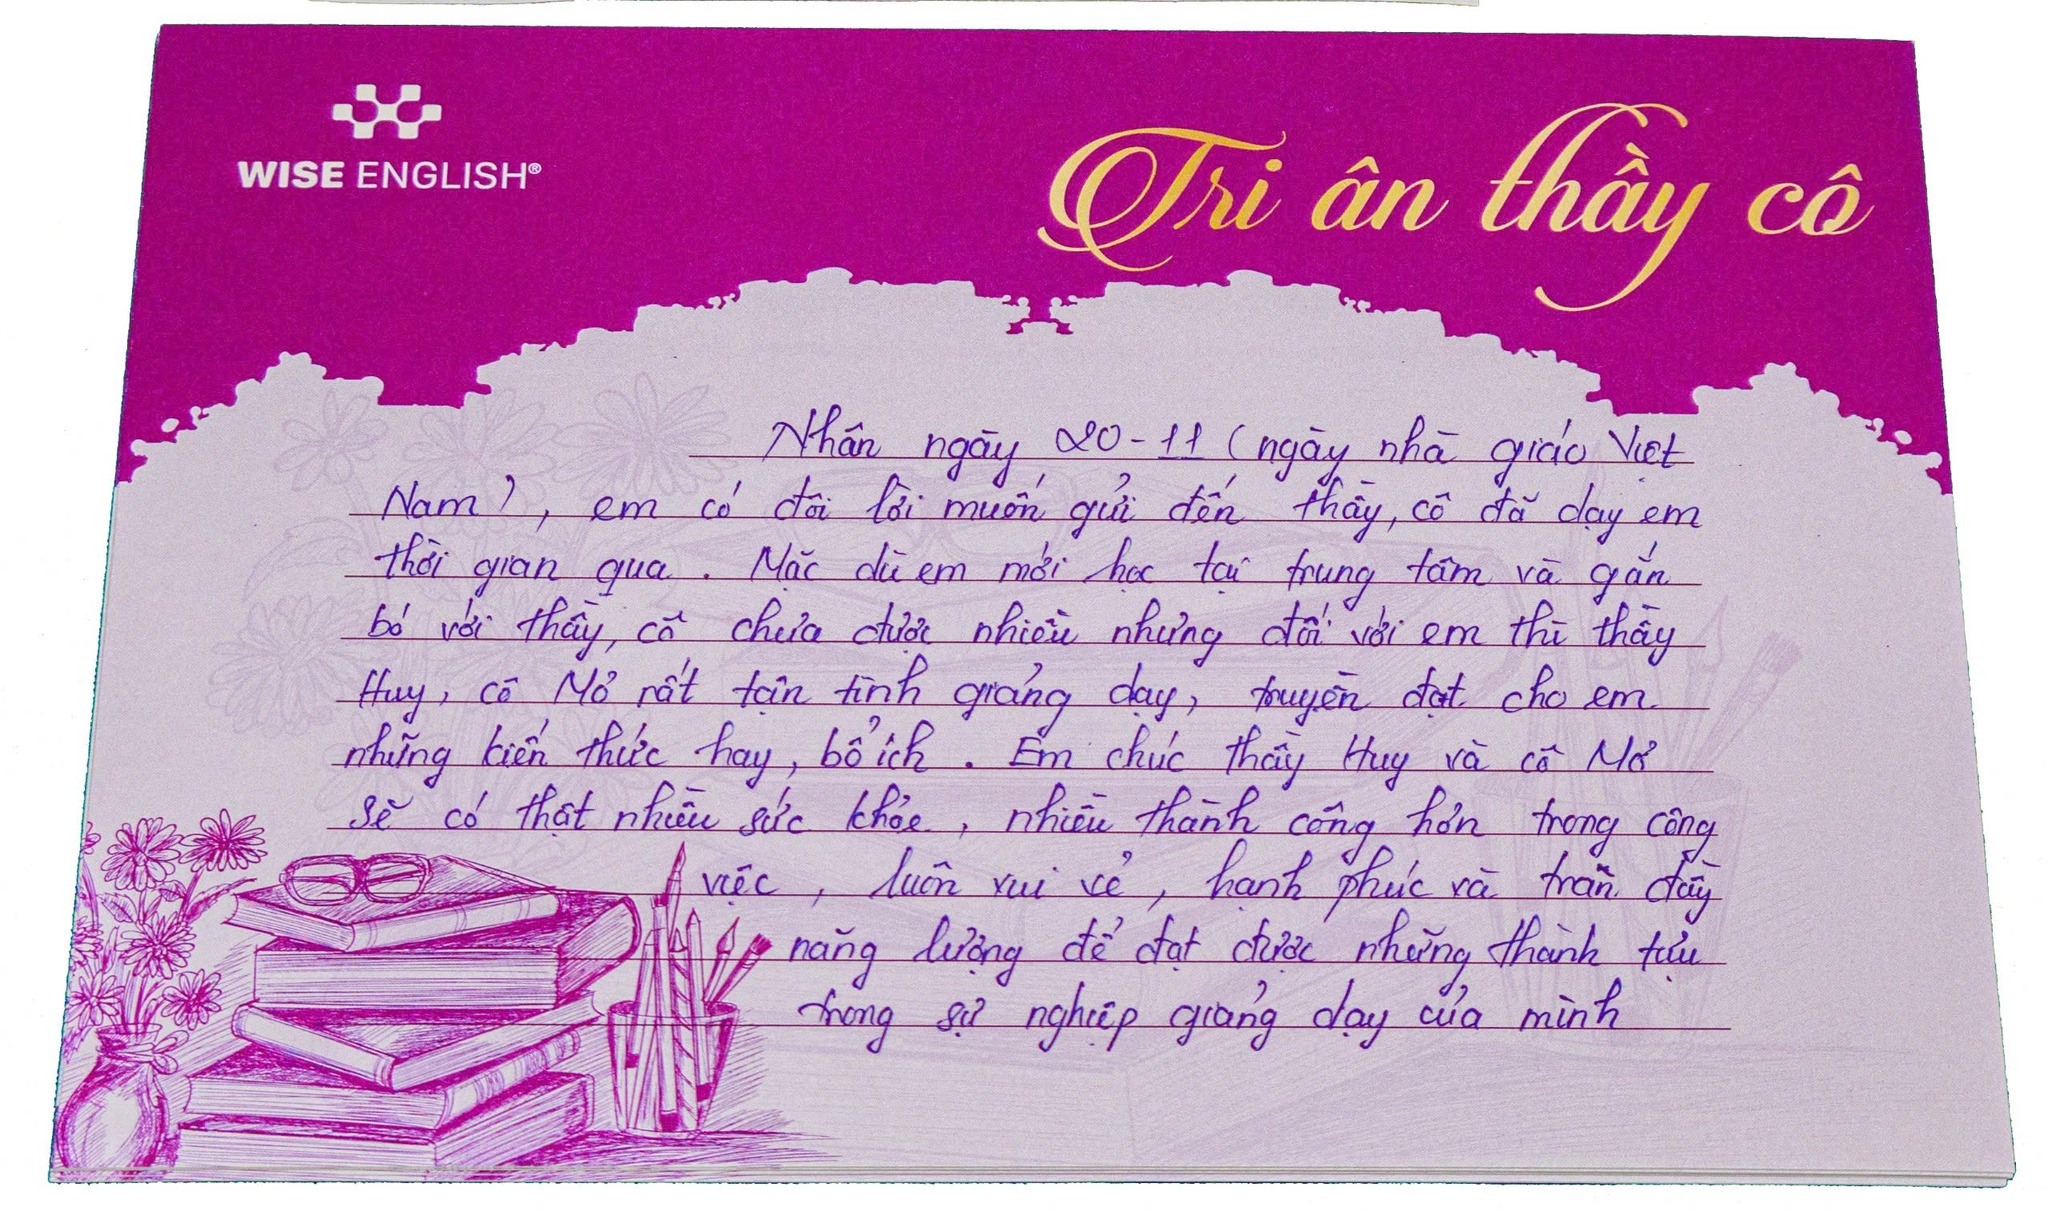 WISE ENGLISH®
Tri ân thầy cô
Nhân ngày 20-11 (ngày nhà giáo Việt
Nam), em có đôi lời muốn gửi đến thầy, cô đã dạy em
thời gian qua. Mặc dù em mới học tại trung tâm và gắn
bó với thầy, cô chưa được nhiều nhưng đối với em thì thầy
Huy, cô Mơ rất tận tình giảng dạy, truyền đạt cho em
những kiến thức hay, bổ ích. Em chúc thầy Huy và cô Mơ
sẽ có thật nhiều sức khỏe, nhiều thành công hơn trong công
việc, luôn vui vẻ, hạnh phúc và tràn đầy
năng lượng để đạt được những thành tựu
trong sự nghiệp giảng dạy của mình